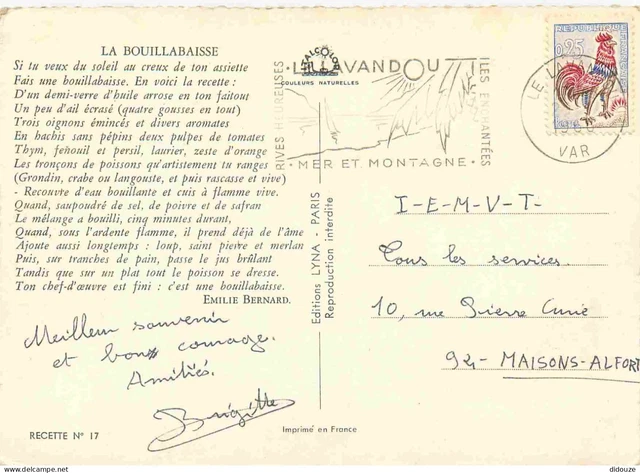 LA BOUILLABAISSE
Si tu veux du soleil au creux de ton assiette
Fais une bouillabaisse. En voici la recette :
D'un demi-verre d'huile arrose en ton faitout
Un peu d'ail écrasé (quatre gousses en tout)
Trois oignons émincés et divers aromates
En hachis sans pépins deux pulpes de tomates
Thym, fenouil et persil, laurier, zeste d'orange
Les tronçons de poissons qu'artistement tu ranges
(Grondin, crabe ou langouste, et puis rascasse et vive)
- Recouvre d'eau bouillante et cuis à flamme vive.
Quand, saupoudré de sel, de poivre et de safran
Le mélange a bouilli, cinq minutes durant,
Quand, sous l'ardente flamme, il prend déjà de l'âme
Ajoute aussi longtemps : loup, saint pierre et merlan
Puis, sur tranches de pain, passe le jus brûlant
Tandis que sur un plat tout le poisson se dresse.
Ton chef-d'œuvre est fini : c'est une bouillabaisse.
EMILIE BERNARD.
Meilleur souvenir
et bon courage.
Amitiés.
Brigitte
RECETTE N° 17
COULEURS NATURELLES
LE LAVANDOU
RIVES HEUREUSES
ILES ENCHANTÉES
· MER ET MONTAGNE ·
Editions LYNA - PARIS
Reproduction interdite
Imprimé en France
0,25
LE LA
VAR
I-E-M-V-T-
Tous les services.
10, rue Pierre Curie
94- MAISONS-ALFORT
delcampe.net
didouze